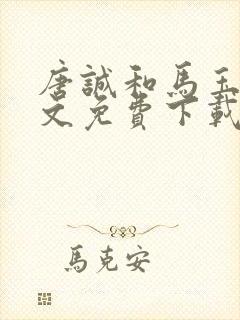 唐誠和馬玉
文免費下載
馬克安